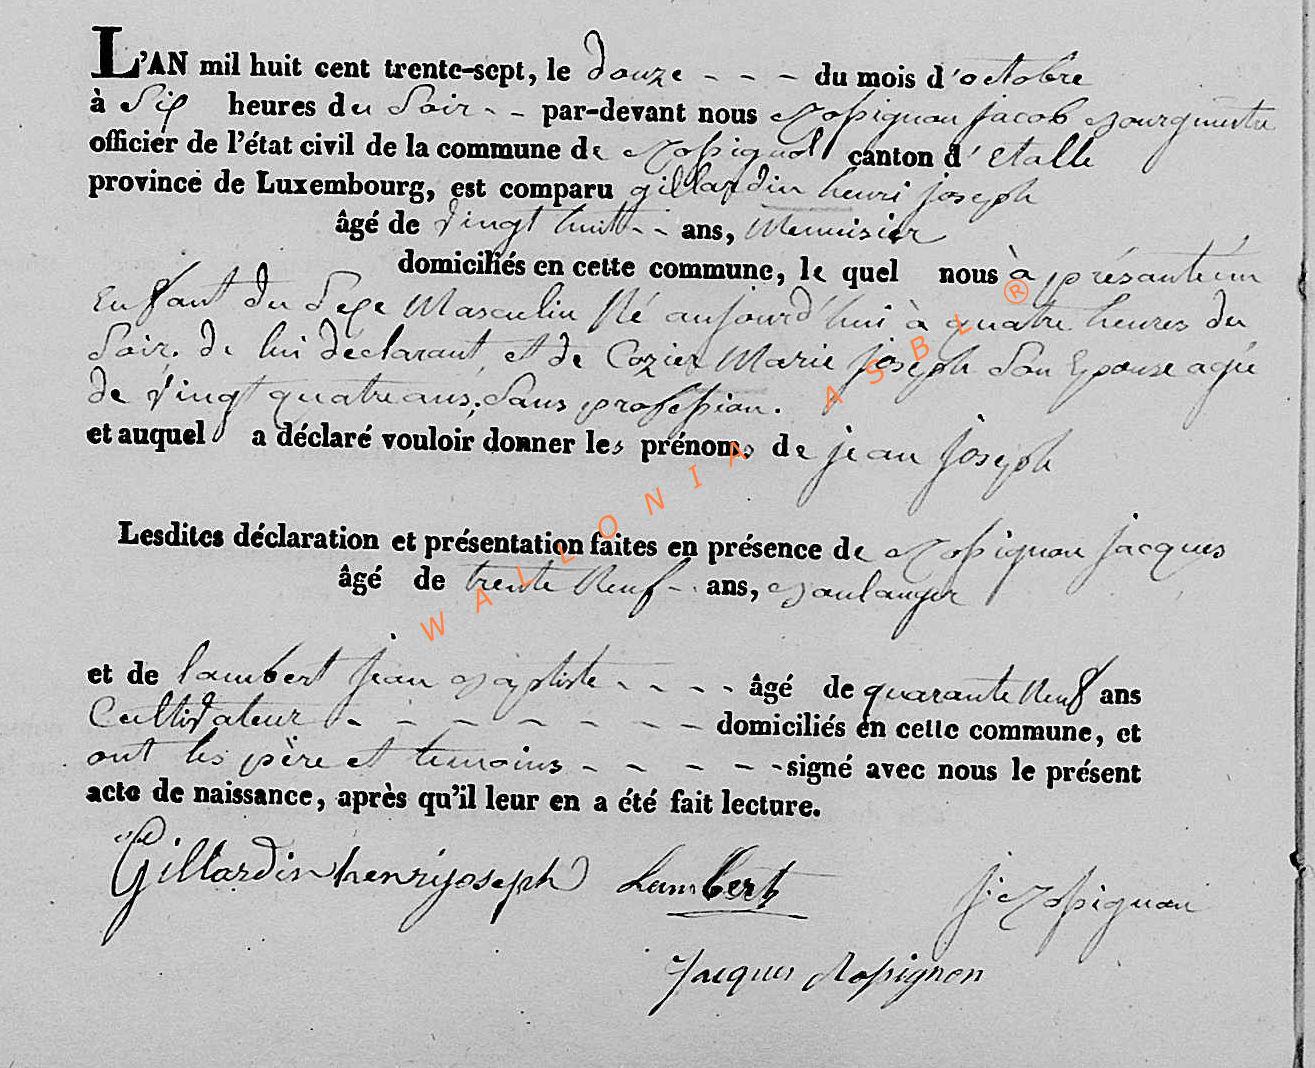 L'AN mil huit cent trente-sept, le douze - - - du mois d'octobre
à Six heures du Soir - - par-devant nous Rossignon jacob Bourgmestre
officier de l'état civil de la commune de Rossignol canton d'etalle
province de Luxembourg, est comparu gillardin henri joseph
âgé de vingt huit - - ans, Menuisier
domiciliés en cette commune, le quel nous à présenté un
Enfant du Sexe Masculin Né aujourd'hui à quatre heures du
Soir. de lui déclarant et de Cozier Marie joseph Son Epouse agée
de vingt quatre ans, Sans profession.
et auquel a déclaré vouloir donner les prénoms de jean joseph
Lesdites déclaration et présentation faites en présence de Rossignon jacques
âgé de trente Neuf - - ans, Boulanger
et de lambert jean Baptiste - - - - âgé de quarante Neuf ans
Cultivateur - - - - - - - - domiciliés en cette commune, et
ont les père et temoins - - - - - signé avec nous le présent
acte de naissance, après qu'il leur en a été fait lecture.
Gillardin henri joseph Lambert j. Rossignon
Jacques Rossignon
WALLONIA ASBL ®